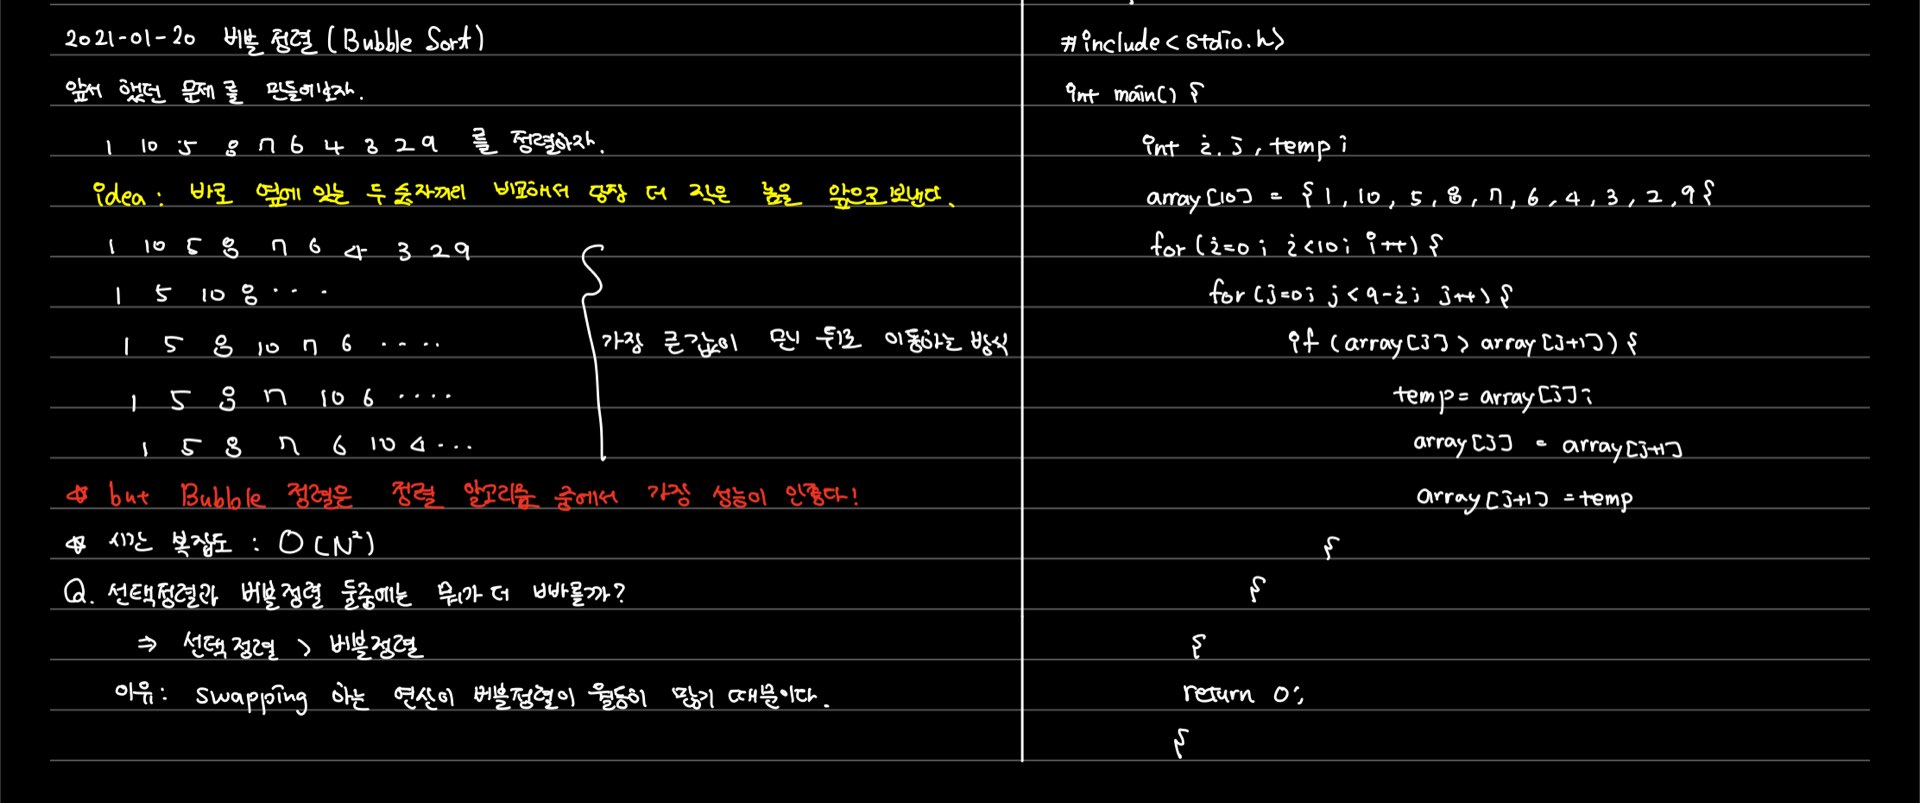 2021-01-20 버블 정렬 (Bubble Sort)
앞서 했던 문제를 만들어보자.
1 10 5 8 7 6 4 3 2 9 를 정렬하자.
idea : 바로 옆에 있는 두 숫자끼리 비교해서 당장 더 작은 놈을 앞으로 보낸다.
1 10 5 8 7 6 4 3 2 9
1 5 10 8 ...
1 5 8 10 7 6 ....
1 5 8 7 10 6 ....
1 5 8 7 6 10 4 ...
가장 큰값이 맨 뒤로 이동하는 방식
☆ but Bubble 정렬은 정렬 알고리즘 중에서 가장 성능이 안좋다!
☆ 시간 복잡도 : O(N²)
Q. 선택정렬과 버블정렬 둘중에는 뭐가 더 빠를까?
⇒ 선택정렬 > 버블정렬
이유 : swapping 하는 연산이 버블정렬이 월등히 많기 때문이다.
#include<stdio.h>
int main() {
int i, j, temp;
array[10] = {1, 10, 5, 8, 7, 6, 4, 3, 2, 9}
for (i=0; i<10; i++) {
for (j=0; j<9-i; j++) {
if (array[j] > array[j+1]) {
temp = array[j];
array[j] = array[j+1]
array[j+1] = temp
}
}
}
return 0;
}